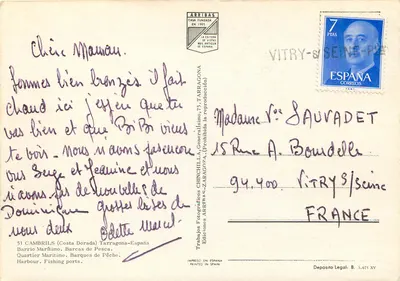 Chère Maman.
sommes bien bronzés il fait
chaud ici j'espère que tu
vas bien et que BiBi viens
te voir - nous n'avons pas encore
vus Serge et Jeanine et nous
n'avons pas de nouvelles de
Dominique grosses bises de
nous deux
Odette Marcel
51 CAMBRILS (Costa Dorada) Tarragona-España
Barrio Marítimo. Barcas de Pesca.
Quartier Maritime. Barques de Pêche.
Harbour. Fishing ports.
ARRIBAS
CASA FUNDADA
EN 1905
Trabajos Fotográficos CHINCHILLA, Generalísimo, 71, TARRAGONA
Ediciones ARRIBAS-ZARAGOZA, (Prohibida la reproducción)
IMPRESO EN ESPAÑA
PRINTED IN SPAIN
7
PTAS
ESPAÑA
CORREOS
VITRY-S/SEINE-Pce
Madame Vve SAUVADET
15 Rue A. Bourdelle
94.400. VITRY s/Seine
FRANCE
Depósito Legal. B.
XV